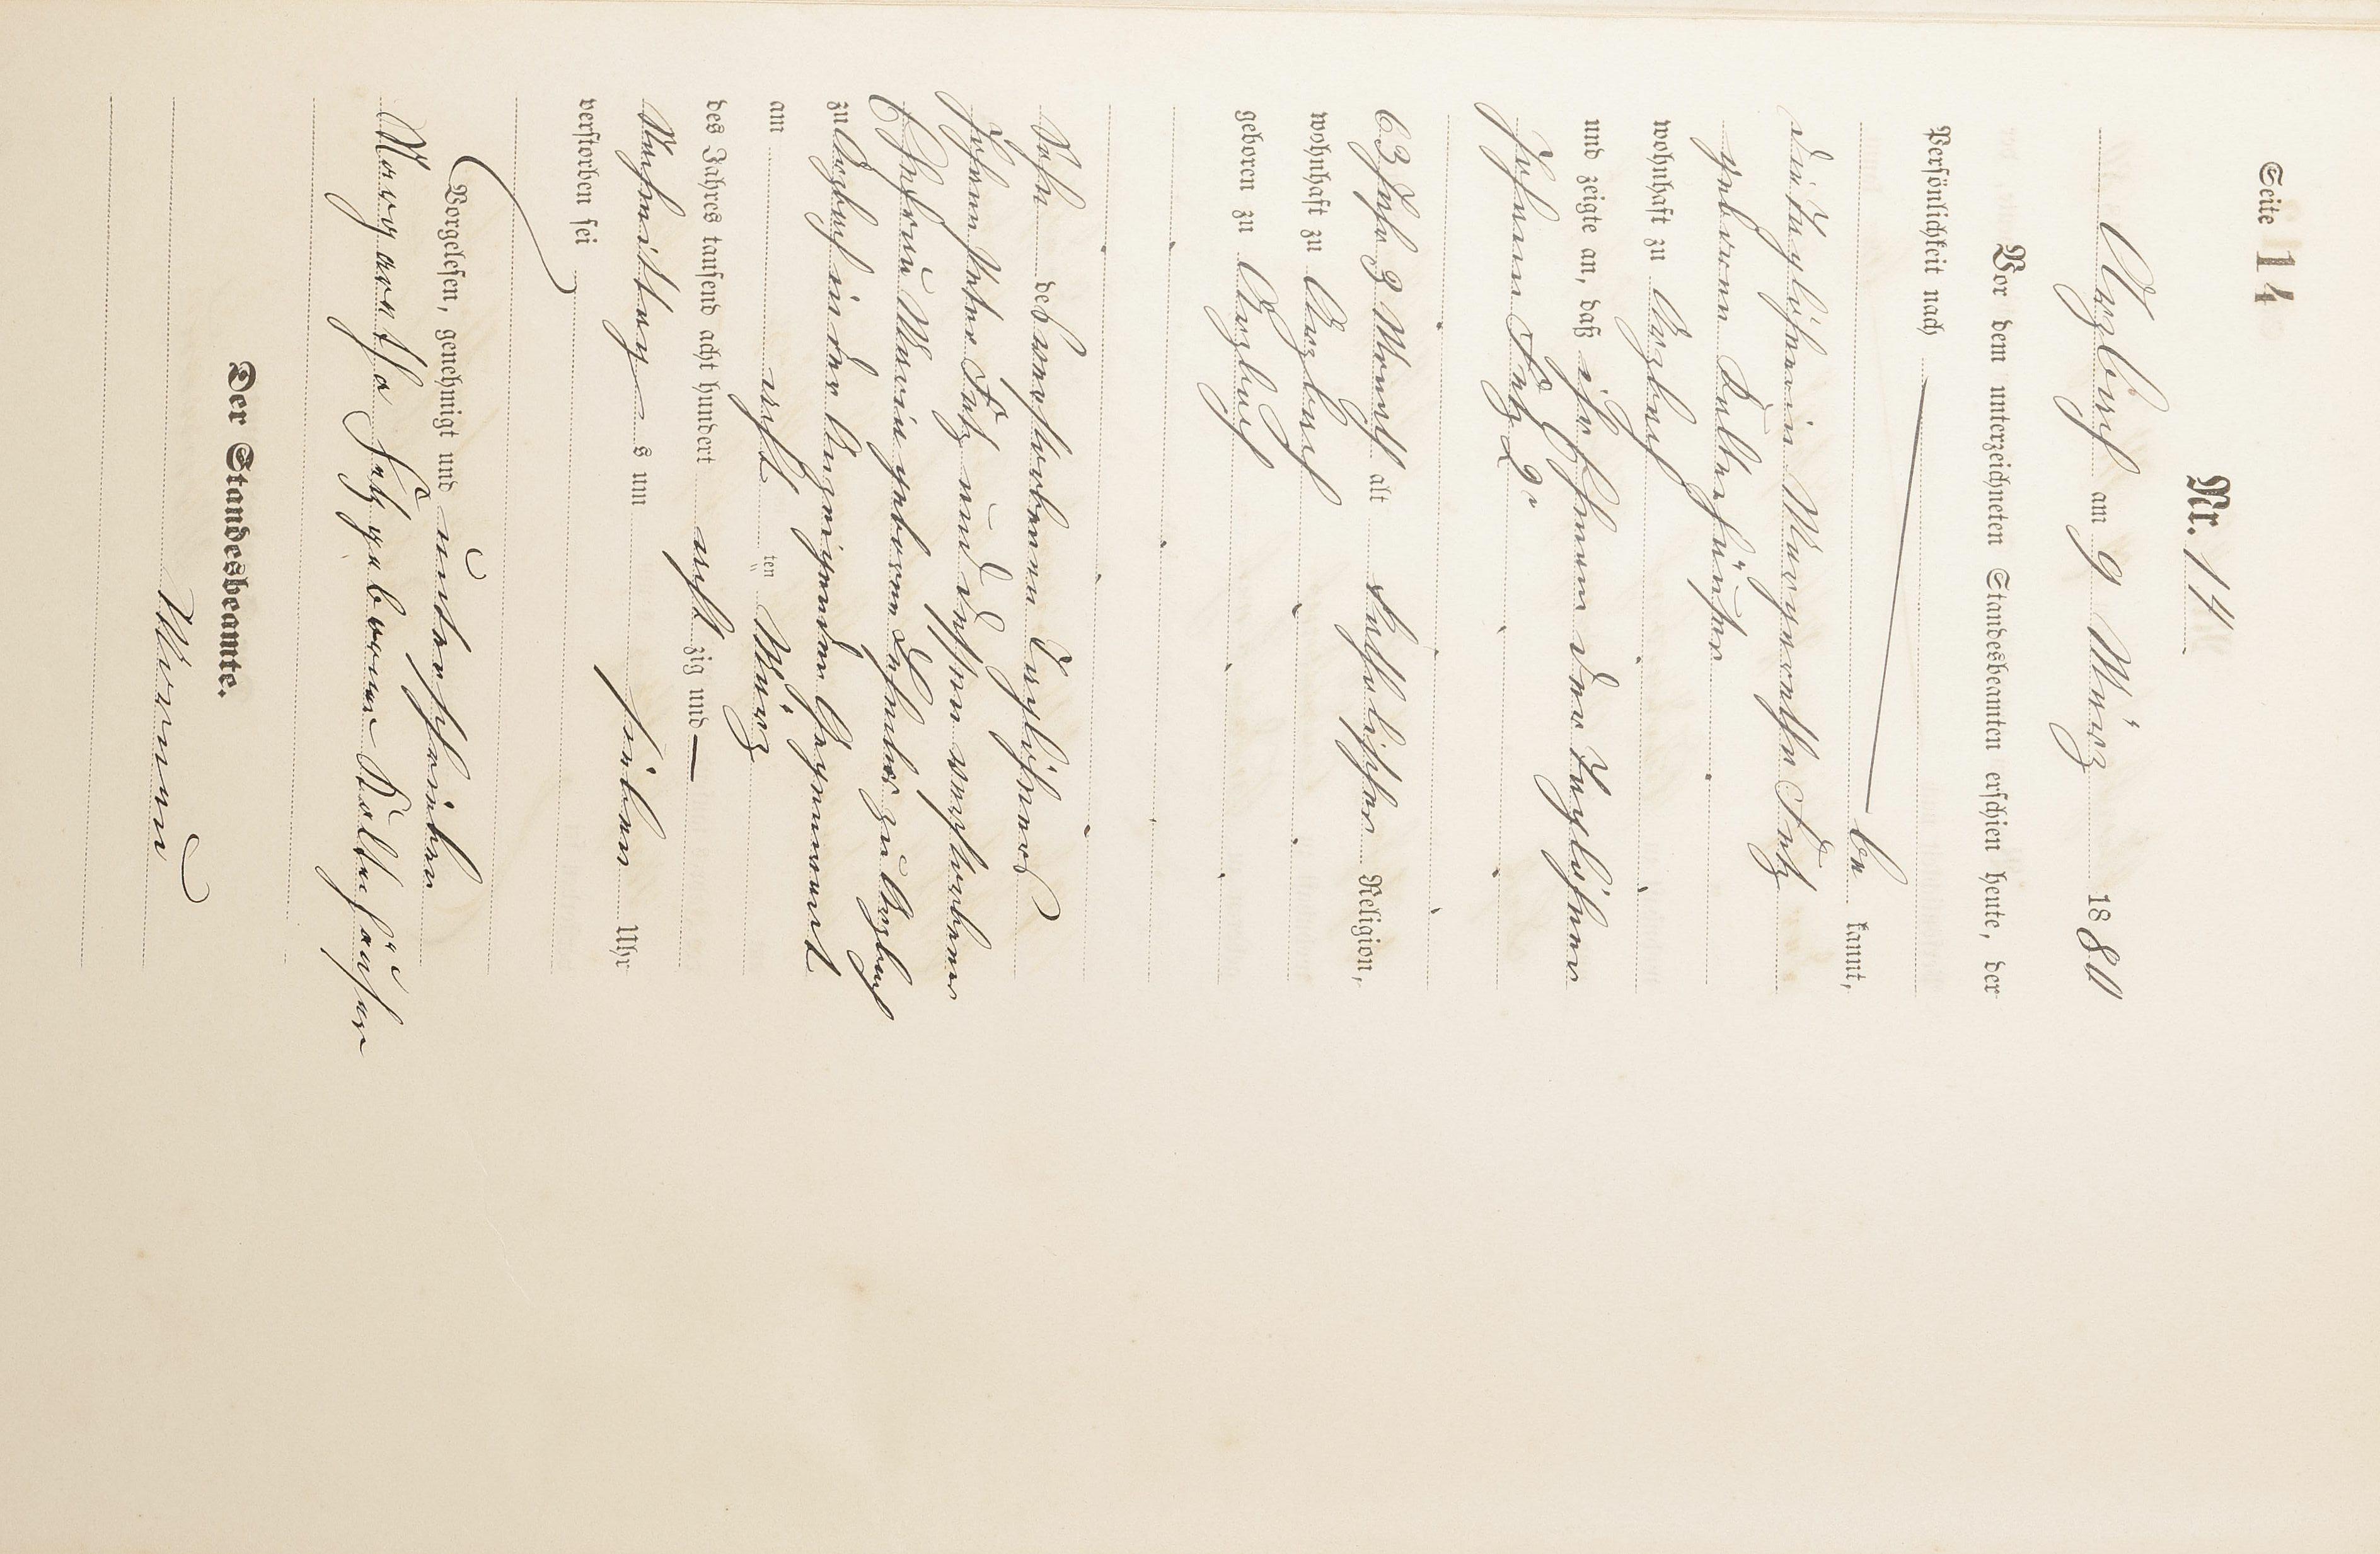 Seite 14
Nr. 14
Arzbach am 9 März 1880
Vor dem unterzeichneten Standesbeamten erschien heute, der
Persönlichkeit nach
be kannt,
die Taglöhnerin Margaretha Fetz
geborene Kaltenhäuser
wohnhaft zu Arzbach
und zeigte an, daß ihr Ehemann der Taglöhner
Johann Fetz 2r
63 Jahr 3 Monath alt katholischer Religion,
wohnhaft zu Arzbach
geboren zu Arzbach
Sohn des verstorbenen Taglöhners
Johann Peter Fetz und dessen verstorbene
Ehefrau Maria geborene zu Arzbach
zu Arzbach in der Anzeigenden Gegenwart
am acht ten März
des Jahres tausend acht hundert acht zig und
Nachmittag s um sieben Uhr
verstorben sei
Vorgelesen, genehmigt und unterschrieben
Margaretha Fetz geborene Kaltenhäuser
Der Standesbeamte.